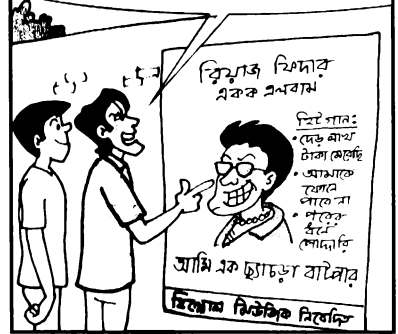 রিয়াজ ফিদার
একক এলবাম
হিট গান:
• দেড় লাখ
টাকা মেরেছি
• আমাকে
ফোনে
পাবে না
• পরের
ধনে
পোদ্দারি
আমি এক ছ্যাচড়া বাটপার
মিউজিক নিবেদিত